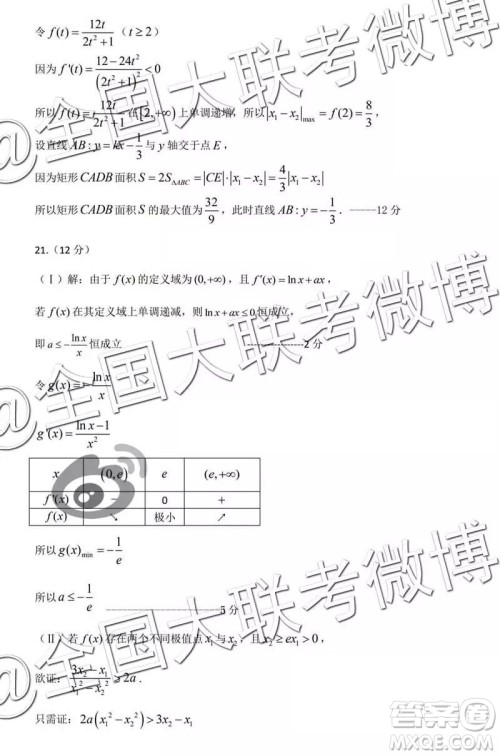 令 f(t) = 12t / (2t² + 1) (t ≥ 2)
因为 f'(t) = (12 − 24t²) / (2t² + 1)² < 0
所以 f(t) = 12t / (2t² + 1) 在 [2, +∞) 上单调递增，所以 |x₁ − x₂|max = f(2) = 8/3，
设直线 AB : y = kx − 1/3 与 y 轴交于点 E，
因为矩形 CADB 面积 S = 2S△ABC = |CE|·|x₁ − x₂| = 4/3 |x₁ − x₂|
所以矩形 CADB 面积 S 的最大值为 32/9，此时直线 AB : y = −1/3．------12 分
21.（12 分）
（Ⅰ）解：由于 f(x) 的定义域为 (0, +∞)，且 f'(x) = ln x + ax，
若 f(x) 在其定义域上单调递减，则 ln x + ax ≤ 0 恒成立，
即 a ≤ − ln x / x 恒成立 ------------------2 分
令 g(x) = − ln x / x
g'(x) = (ln x − 1) / x²
x (0, e) e (e, +∞)
f'(x) − 0 +
f(x) ↘ 极小 ↗
所以 g(x)min = − 1/e
所以 a ≤ − 1/e ------------------5 分
（Ⅱ）若 f(x) 存在两个不同极值点 x₁ 与 x₂，且 x₂ ≥ ex₁ > 0，
欲证：(3x₂ − x₁) / (x₁² − x₂²) ≥ 2a．
只需证：2a(x₁² − x₂²) > 3x₂ − x₁
@全国大联考微博
@全国大联考微博
@全国大联考微博
答案圈
MXQE.COM